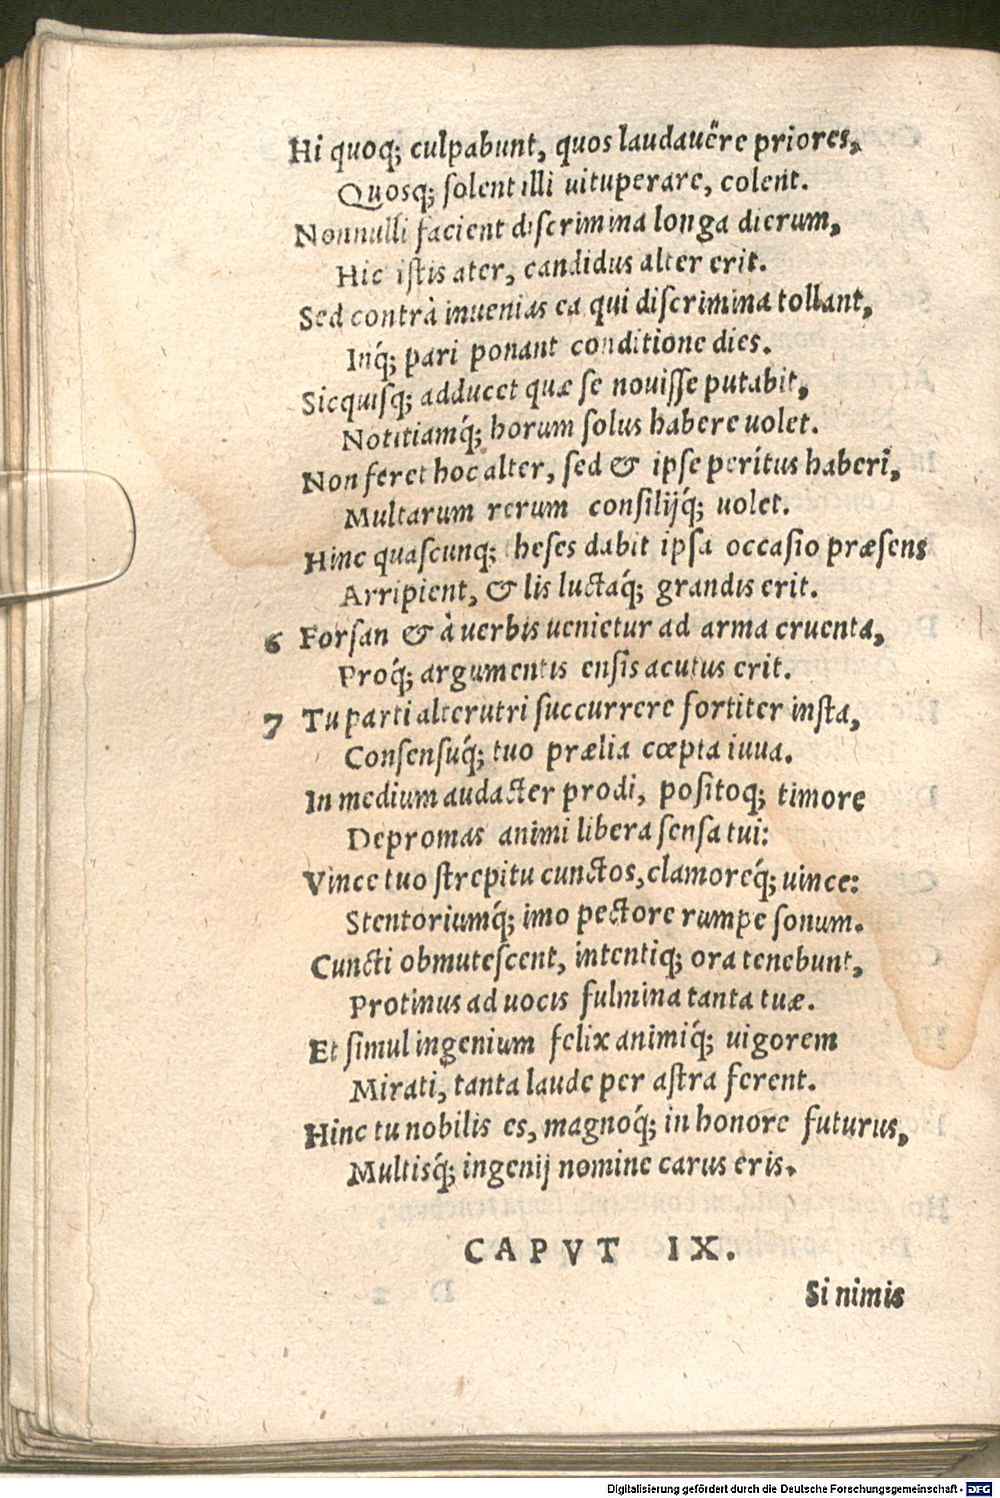 Hi quoq; culpabunt, quos laudauêre priores,
Quosq; solent illi uituperare, colent.
Nonnulli facient discrimina longa dierum,
Hic istis ater, candidus alter erit.
Sed contrà inuenias ea qui discrimina tollant,
Inq́; pari ponant conditione dies.
Sicquisq; adducet quæ se nouisse putabit,
Notitiamq́; horum solus habere uolet.
Non feret hoc alter, sed & ipse peritus haberi,
Multarum rerum consilijq́; uolet.
Hinc quascunq; heses dabit ipsa occasio præsens
Arripient, & lis luctaq́; grandis erit.
6 Forsan & à uerbis uenietur ad arma cruenta,
Proq́; argumentis ensis acutus erit.
7 Tu parti alterutri succurrere fortiter insta,
Consensuq́; tuo prælia cœpta iuua.
In medium audacter prodi, positoq; timore
Depromas animi libera sensa tui:
Vince tuo strepitu cunctos, clamoreq́; uince:
Stentoriumq́; imo pectore rumpe sonum.
Cuncti obmutescent, intentiq; ora tenebunt,
Protinus ad uocis fulmina tanta tuæ.
Et simul ingenium felix animiq́; uigorem
Mirati, tanta laude per astra ferent.
Hinc tu nobilis es, magnoq́; in honore futurus,
Multisq́; ingenij nomine carus eris.
CAPVT IX.
Si nimis
Digitalisierung gefördert durch die Deutsche Forschungsgemeinschaft - DFG